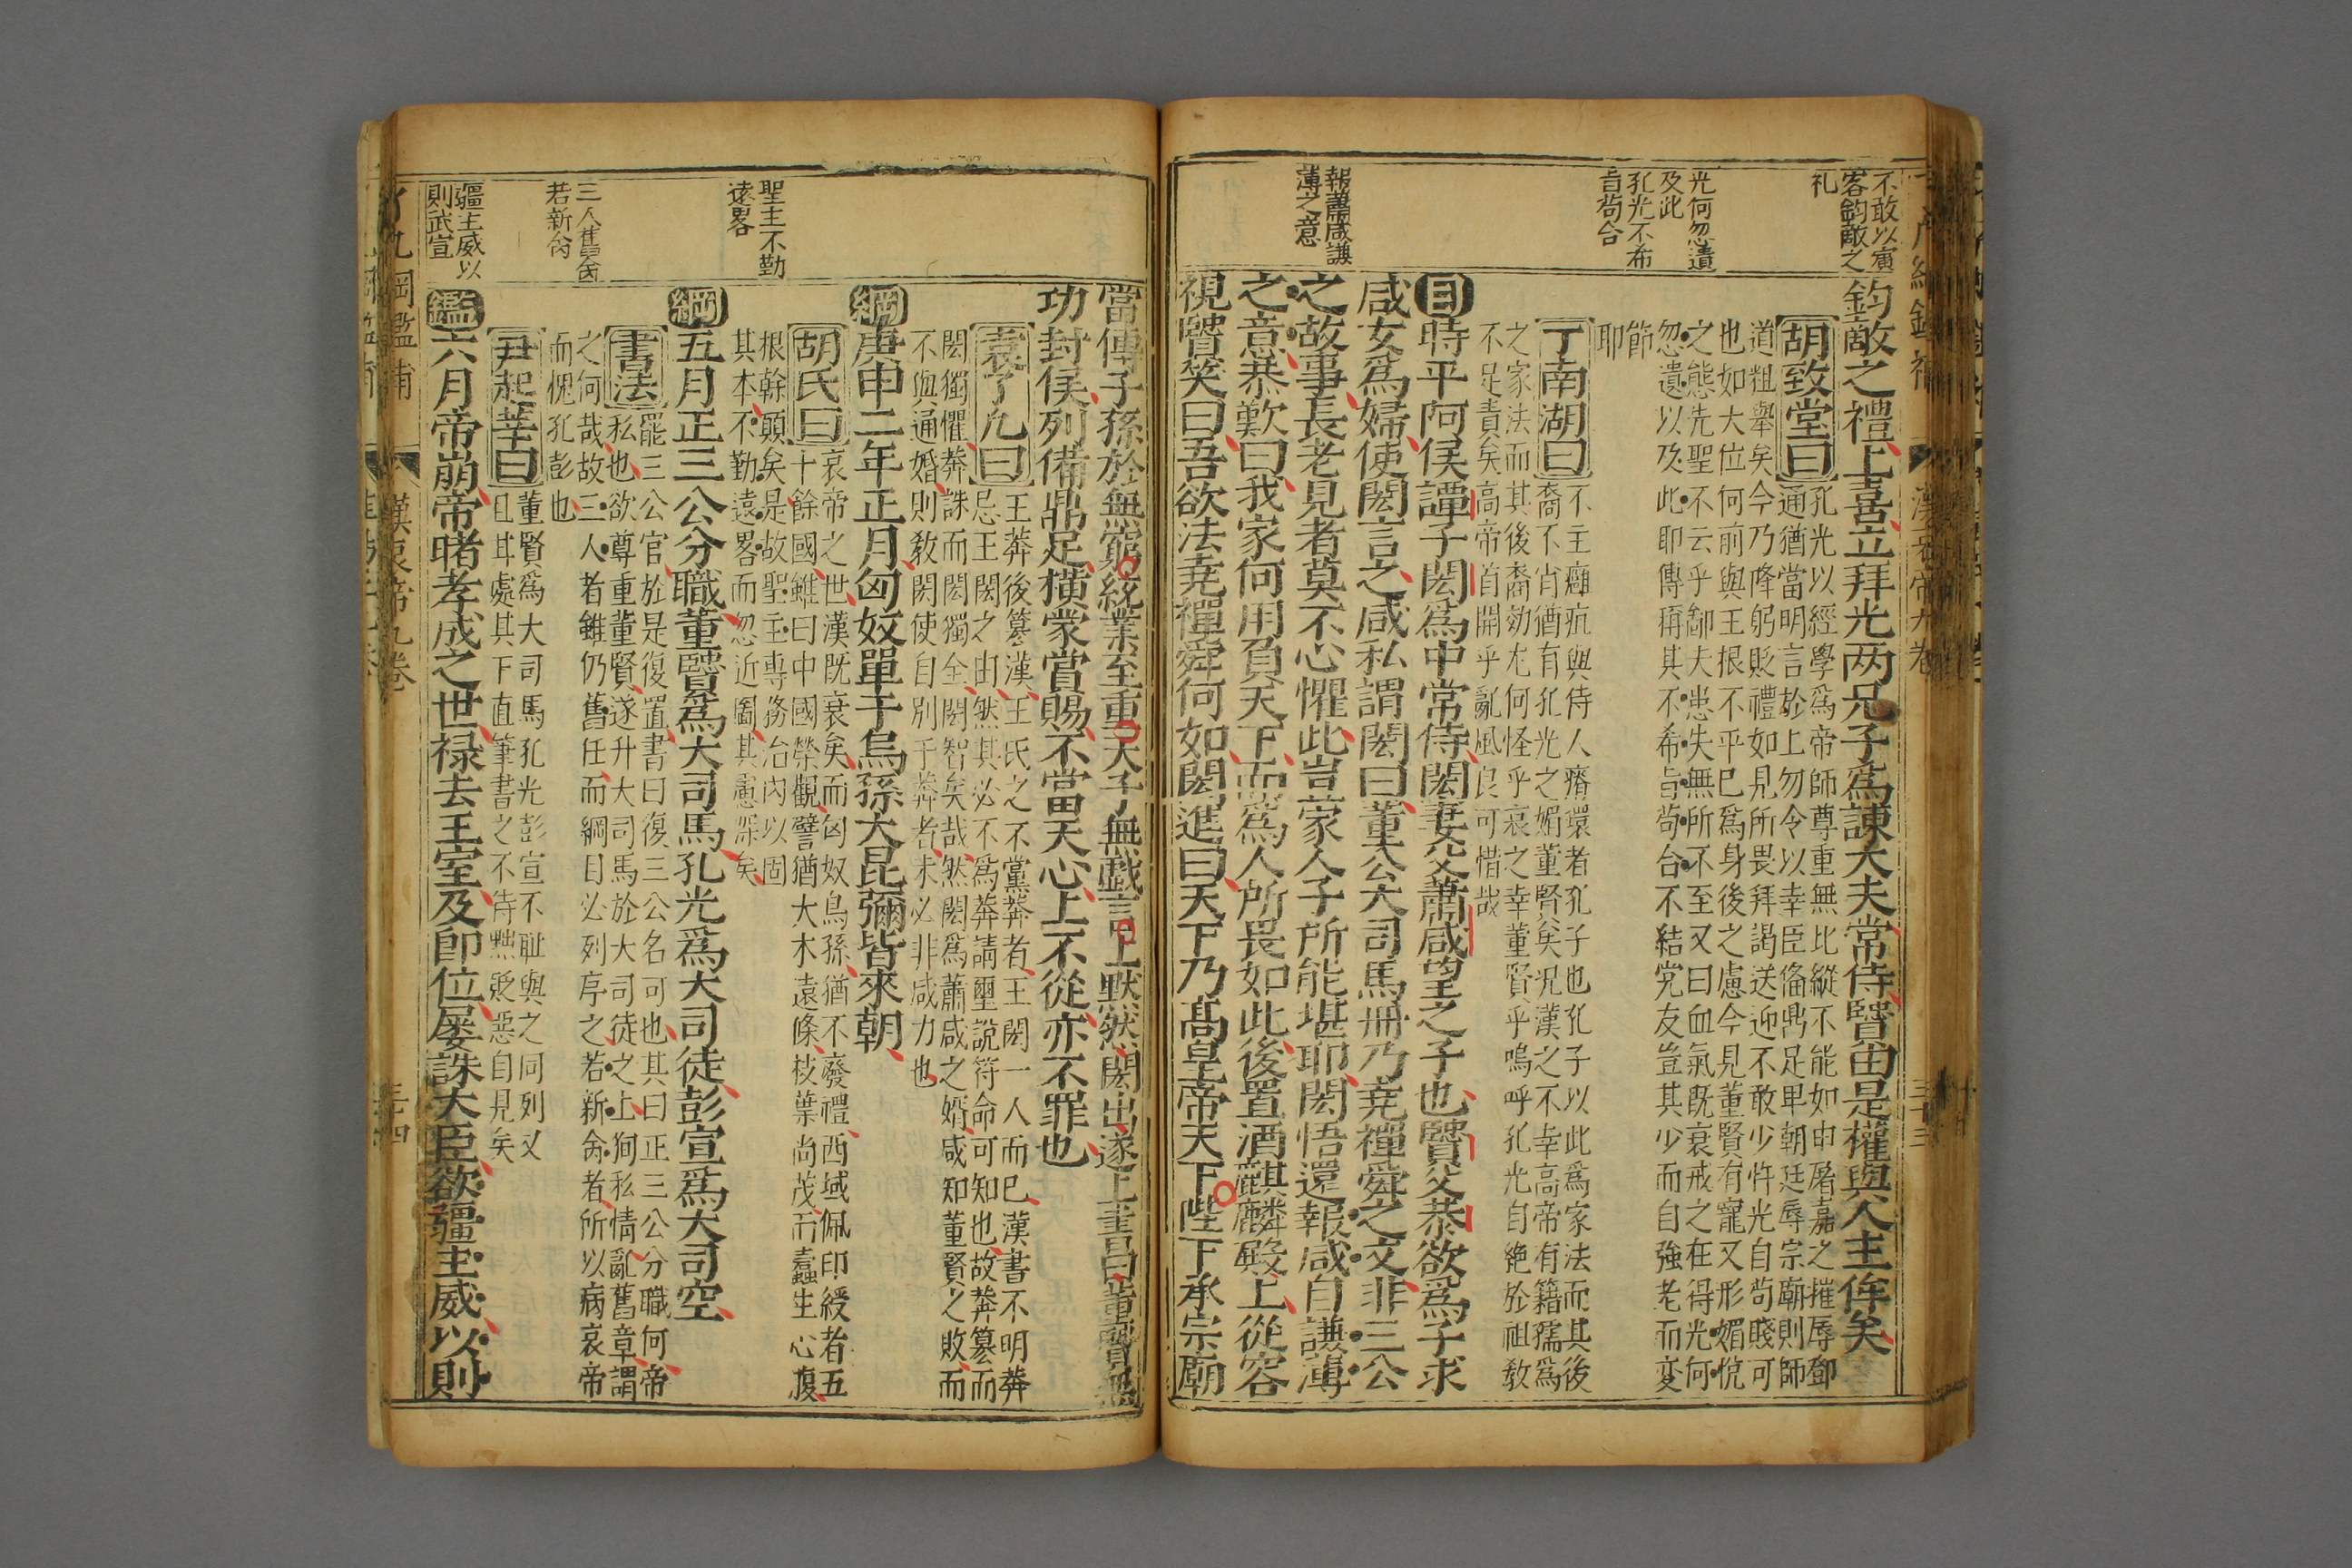 不敢以賔
客鈞敵之
礼
光何忽遺
及此
孔光不布
旨茍合
報蕭咸謙
薄之意
鈞敵之禮上喜立拜光两兄子為諫大夫常侍賢由是權與人主侔矣
胡致堂曰
孔光以經學爲帝師尊重無比縱不能如申屠嘉之摧辱鄧
通猶當明言於上勿令以幸臣俻鼎足卑朝廷辱宗廟則師
道粗舉矣今乃降躬貶禮如見所畏拜謁送迎不敢少忤光自茍賤可
也如大位何前與王根不平已爲身後之慮今見董賢有寵又形媚恱
之態先聖不云乎鄙夫患失無所不至又曰血氣既衰戒之在得光何
忽遺以及此耶傳稱其不希旨茍合不結党友豈其少而自強老而变
節
耶
丁南湖曰
不主癰疽與侍人瘠環者孔子也孔子以此爲家法而其後
裔不肖猶有孔光之媚董賢矣况漢之不幸高帝有籍孺爲
之家法而其後裔効尤何怪乎哀之幸董賢乎嗚呼孔光自絶於祖敎
不足責矣高帝首開乎亂風良可惜哉
目時平阿侯譚子閎爲中常侍閎妻父蕭咸望之子也賢父恭欲爲子求
咸女爲婦使閎言之咸私謂閎曰董公大司馬冊乃堯禪舜之文非三公
之故事長老見者莫不心懼此豈蒙人子所能堪耶閎悟還報咸自謙薄
之意恭歎曰我家何用負天下而爲人所畏如此後置酒麒麟殿上從容
視賢笑曰吾欲法堯禪舜何如閎進曰天下乃高皇帝天下陛下承宗廟
聖主不勤
遠畧
三人舊㑹
若新㑹
彊主威以
則武宣
當傳子孫於無窮統業至重天子無戲言上默然閎出遂上書曰董賢無
功封侯列備鼎足橫蒙賞賜不當天心上不從亦不罪也
袁了凡曰
王莽後簒漢王氏之不黨莽者王閎一人而已漢書不明莽
忌王閎之由然其必不爲莽請璽説符命可知也故莽簒而
閎獨懼莽誅而閎獨全閎智矣哉然閎爲蕭咸之婿咸知董賢之敗而
不與通婚則敎閎使自别于莽者未必非咸力也
綱庚申二年正月匈奴單于烏孫大昆彌皆來朝
胡氏曰
哀帝之世漢既衰矣而匈奴烏孫猶不廢禮西域佩印綬者五
十餘國雖曰中國榮觀譬猶大木遠條枝葉尚茂而蠹生心腹
根幹顛矣是故聖主專務治内以固
其本不勤遠畧而忽近圖其慮深矣
綱五月正三公分職董賢爲大司馬孔光爲大司徒彭宣爲大司空
書法
罷三公官於是復置書曰復三公名可也其曰正三公分職何帝
私也欲尊重董賢遂升大司馬於大司徒之上狥私情亂舊章謂
之何哉故三人者雖仍舊任而綱目必列序之若新命者所以病哀帝
而愧孔彭也
尹起莘曰
董賢爲大司馬孔光彭宣不耻與之同列又
且甘處其下直筆書之不待黜貶惡自見矣
鑑六月帝崩帝睹孝成之世禄去王室及卽位屢誅大臣欲彊主威以則
漢哀帝九卷
三十四